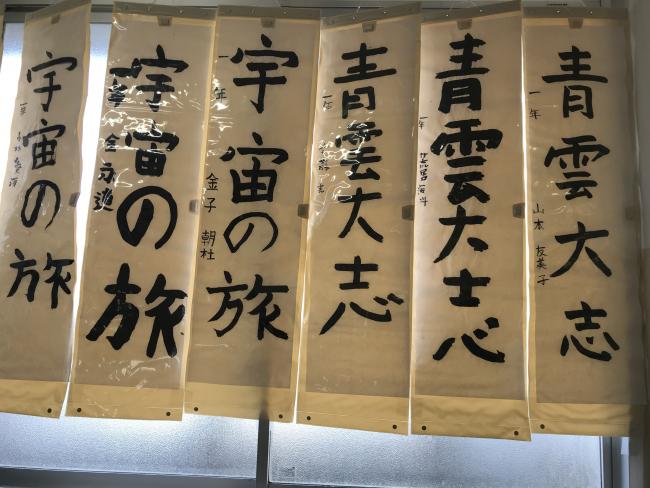 青雲大志
一年 山本 友美子
青雲大志
一年
青雲大志
一年
宇宙の旅
一年 金子 朝杜
宇宙の旅
一年
宇宙の旅
一年